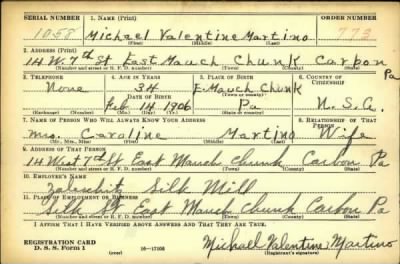 SERIAL NUMBER 1. NAME (Print) ORDER NUMBER
1058 Michael Valentine Martino 773
(First) (Middle) (Last)
2. ADDRESS (Print)
14 W. 7th St East Mauch Chunk Carbon Pa
(Number and street or R. F. D. number) (Town) (County) (State)
3. TELEPHONE 4. AGE IN YEARS 5. PLACE OF BIRTH 6. COUNTRY OF CITIZENSHIP
None 34 E. Mauch Chunk
DATE OF BIRTH (Town or county)
Feb 14 1906 Pa U. S. A.
(Exchange) (Number) (Mo.) (Day) (Yr.) (State or country)
7. NAME OF PERSON WHO WILL ALWAYS KNOW YOUR ADDRESS 8. RELATIONSHIP OF THAT PERSON
Mrs. Caroline Martino Wife
(Mr., Mrs., Miss) (First) (Middle) (Last)
9. ADDRESS OF THAT PERSON
14 West 7th St East Mauch Chunk Carbon Pa
(Number and street or R. F. D. number) (Town) (County) (State)
10. EMPLOYER'S NAME
Silk Mill
11. PLACE OF EMPLOYMENT OR BUSINESS
Silk St East Mauch Chunk Carbon Pa
(Number and street or R. F. D. number) (Town) (County) (State)
I AFFIRM THAT I HAVE VERIFIED ABOVE ANSWERS AND THAT THEY ARE TRUE.
REGISTRATION CARD
D. S. S. Form 1 16—17105 Michael Valentine Martino
(Registrant's signature)